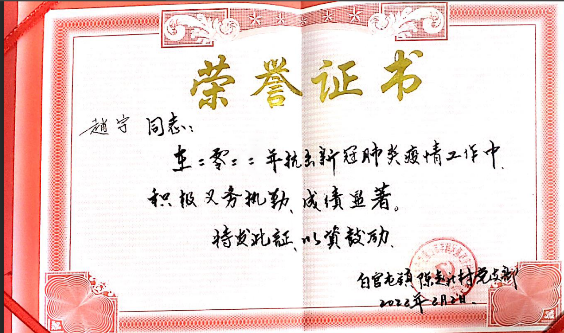 荣誉证书
赵宁 同志:
在二零二二年抗击新冠肺炎疫情工作中,
积极义务执勤、成绩显著。
特发此证,以资鼓励.
白官屯镇 陈 村党支部
2022年3月2日.